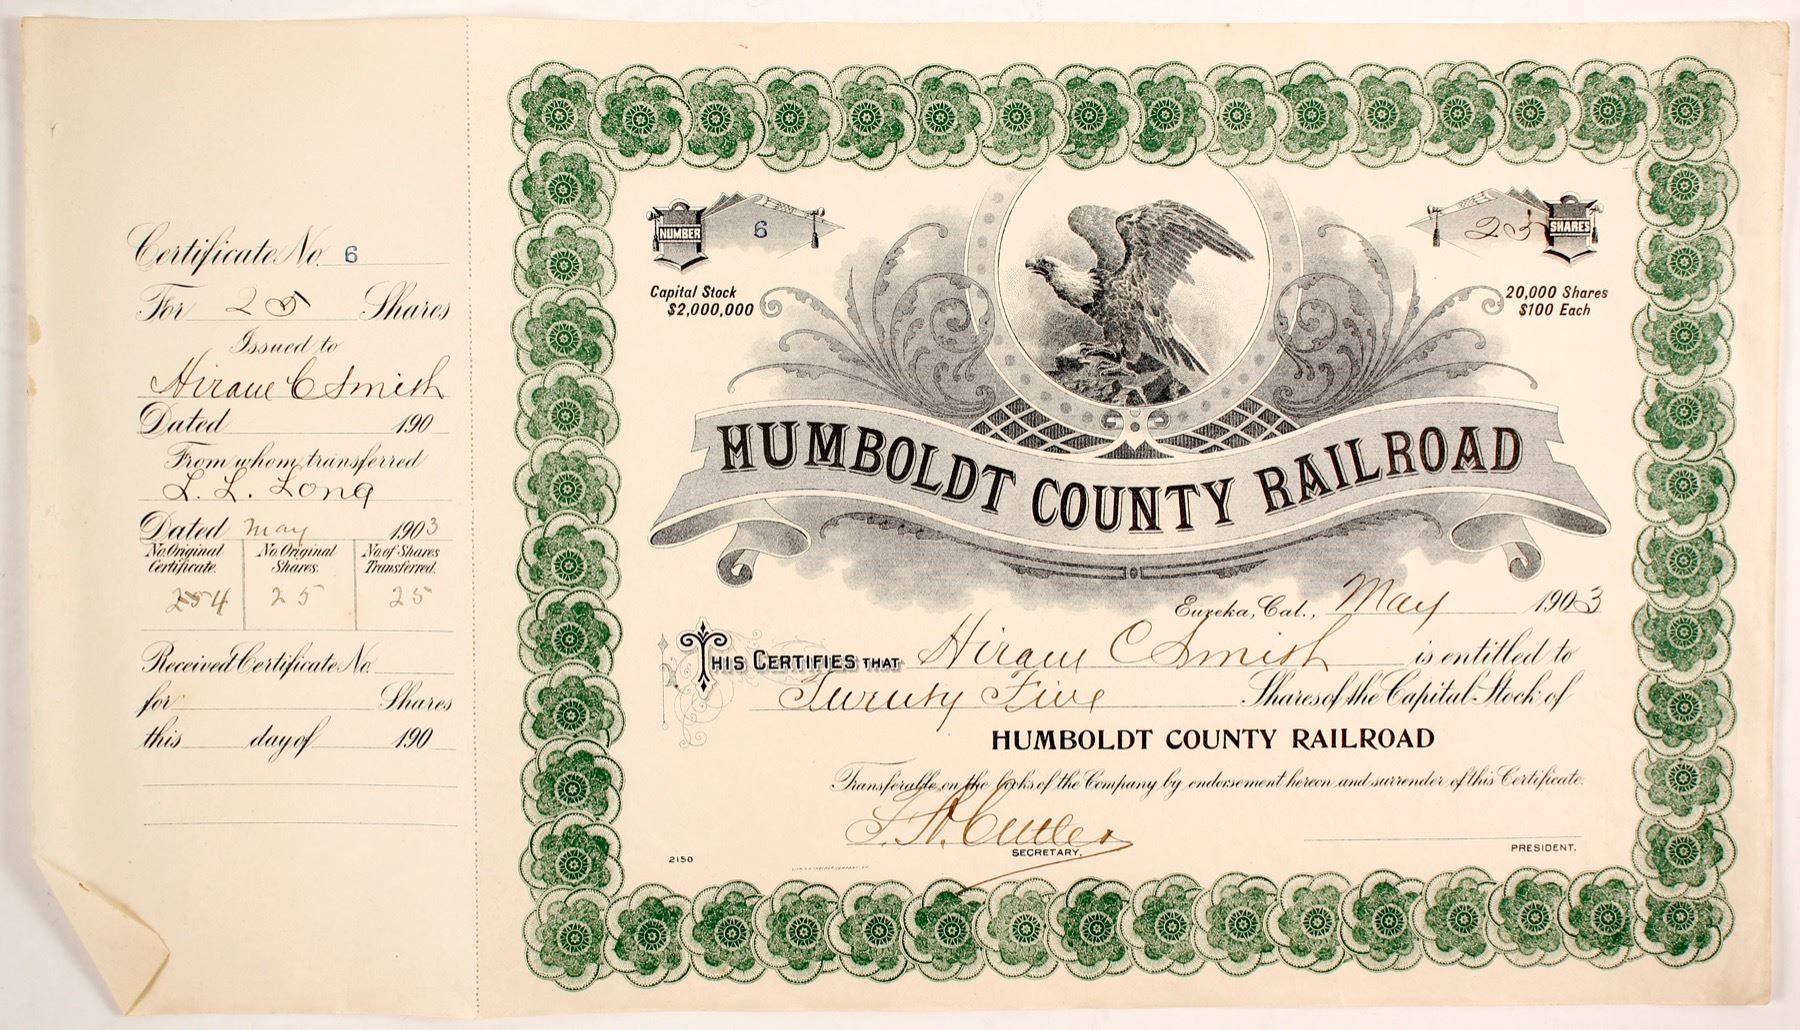 Certificate No. 6
For 25 Shares
Issued to
Hiram C Smith
Dated 190
From whom transferred
L. L. Long
Dated May 1903
No. Original Certificate. No. Original Shares. No. of Shares Transferred.
254 25 25
Received Certificate No.
for Shares
this day of 190
NUMBER 6
25 SHARES
Capital Stock
$2,000,000
20,000 Shares
$100 Each
HUMBOLDT COUNTY RAILROAD
Eureka, Cal., May 1903
THIS CERTIFIES THAT Hiram C Smith is entitled to
Twenty Five Shares of the Capital Stock of
HUMBOLDT COUNTY RAILROAD
Transferable on the books of the Company by endorsement hereon and surrender of this Certificate.
Cutler
SECRETARY.
PRESIDENT.
2150